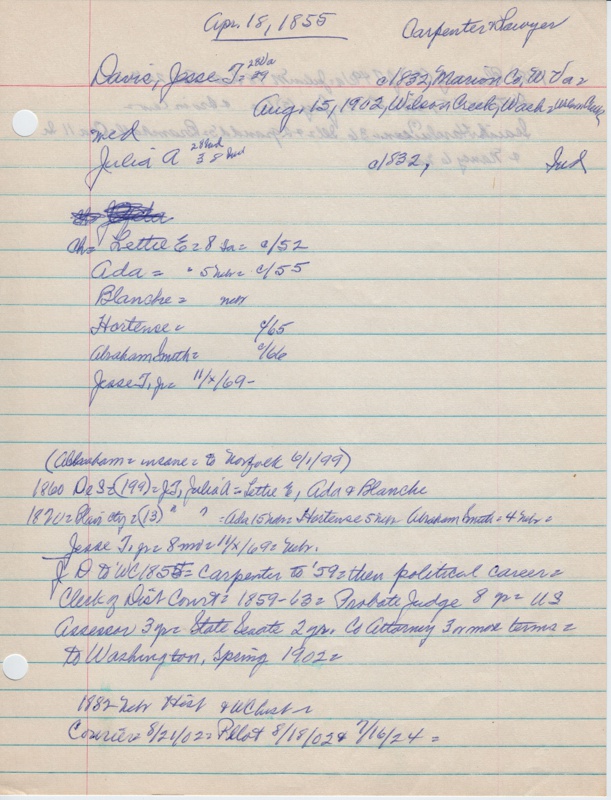 Apr. 18, 1855
Carpenter & Lawyer
Davis, Jesse T. = 28 Va 29 c/1832, Marion Co, W. Va =
Aug. 15, 1902, Wilson Creek, Wash =
md
Julia A 28 Ind 38 Ind c/1832, Ind
Ch = Lettie E = 8 Ia = c/52
Ada = " 5 Nebr = c/55
Blanche = nebr
Hortense = c/65
Abraham Smith = c/66
Jesse T, jr = 11/x/69 -
(Abraham = insane = to Norfolk 6/1/99)
1860 De S = (199) = J.T, Julia A = Lettie E, Ada & Blanche
1870 = Plain cty = (13) " " = Ada 15 nebr = Hortense 5 nebr Abraham Smith = 4 nebr =
Jesse T, jr = 8 mo = 11/x/69 = nebr.
J D to WC 1855 = Carpenter to '59 = then political career =
Clerk of Dist Court = 1859-63 = Probate Judge 8 yr = US
Assessor 3 yr = State Senate 2 yr. Co Attorney 3 or more terms =
to Washington, Spring 1902 =
1882 Nebr Hist
Courier = 8/21/02 = Pilot 8/18/02 & 7/16/24 =